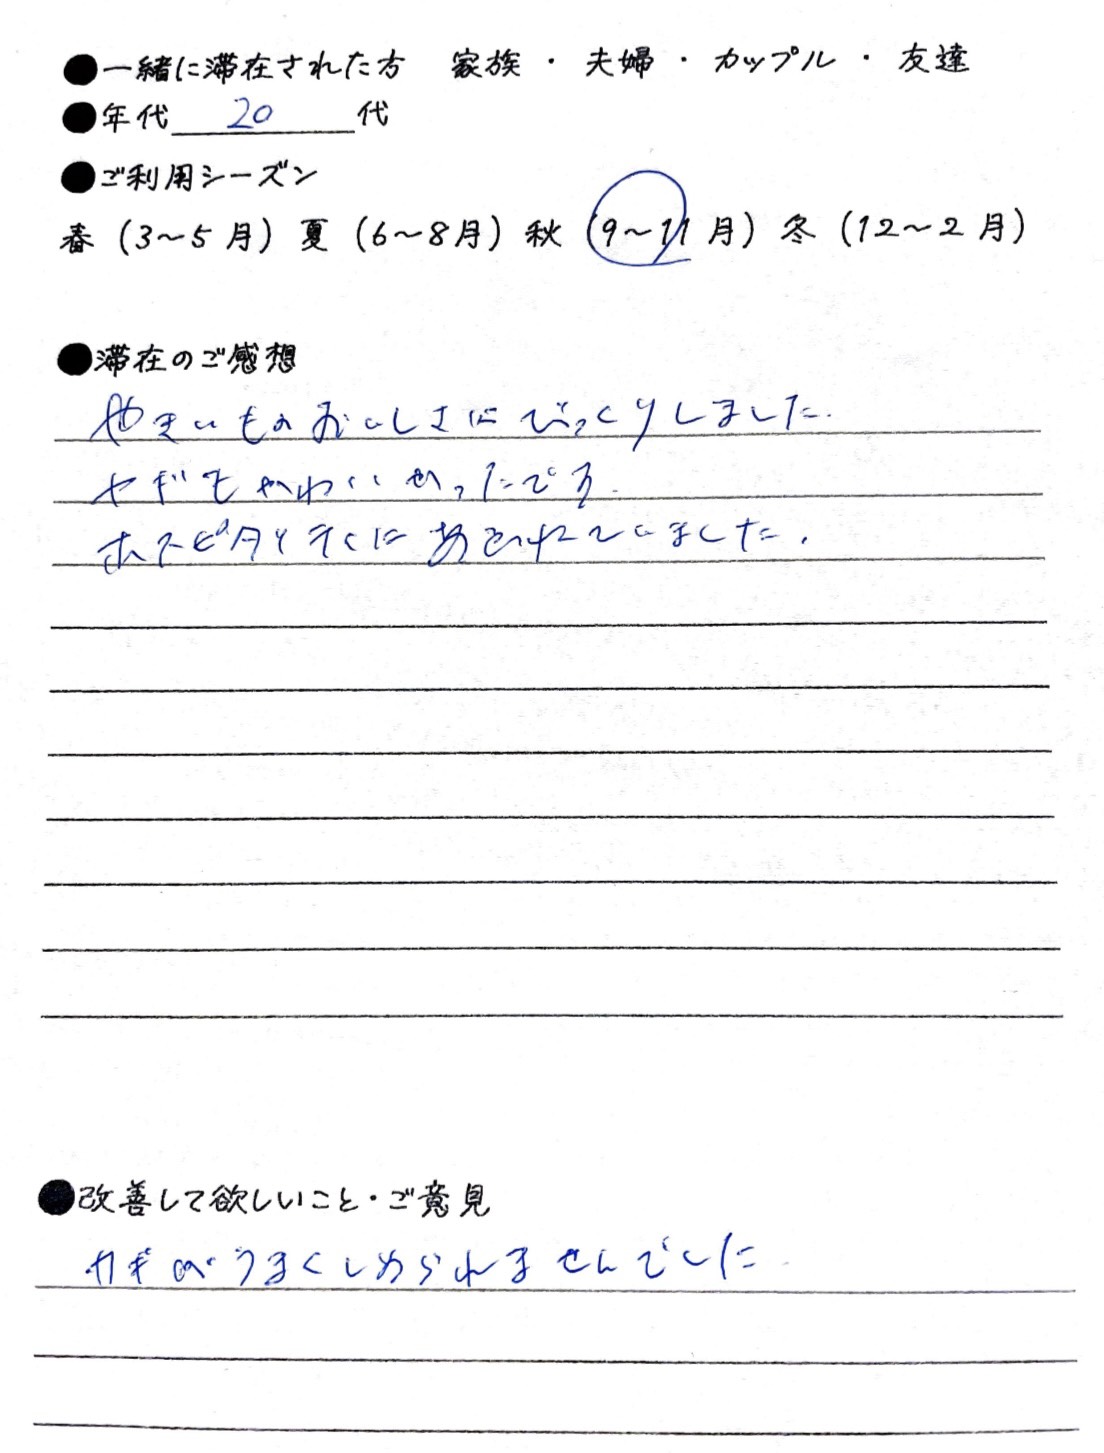 ●一緒に滞在された方 家族・夫婦・カップル・友達
●年代 20 代
●ご利用シーズン
春(3〜5月)夏(6〜8月)秋(9〜11月)冬(12〜2月)
●滞在のご感想
やきいものおいしさにびっくりしました.
ヤギもかわいかったです.
ホスピタリティにあふれていました.
●改善して欲しいこと・ご意見
カギがうまくしめられませんでした